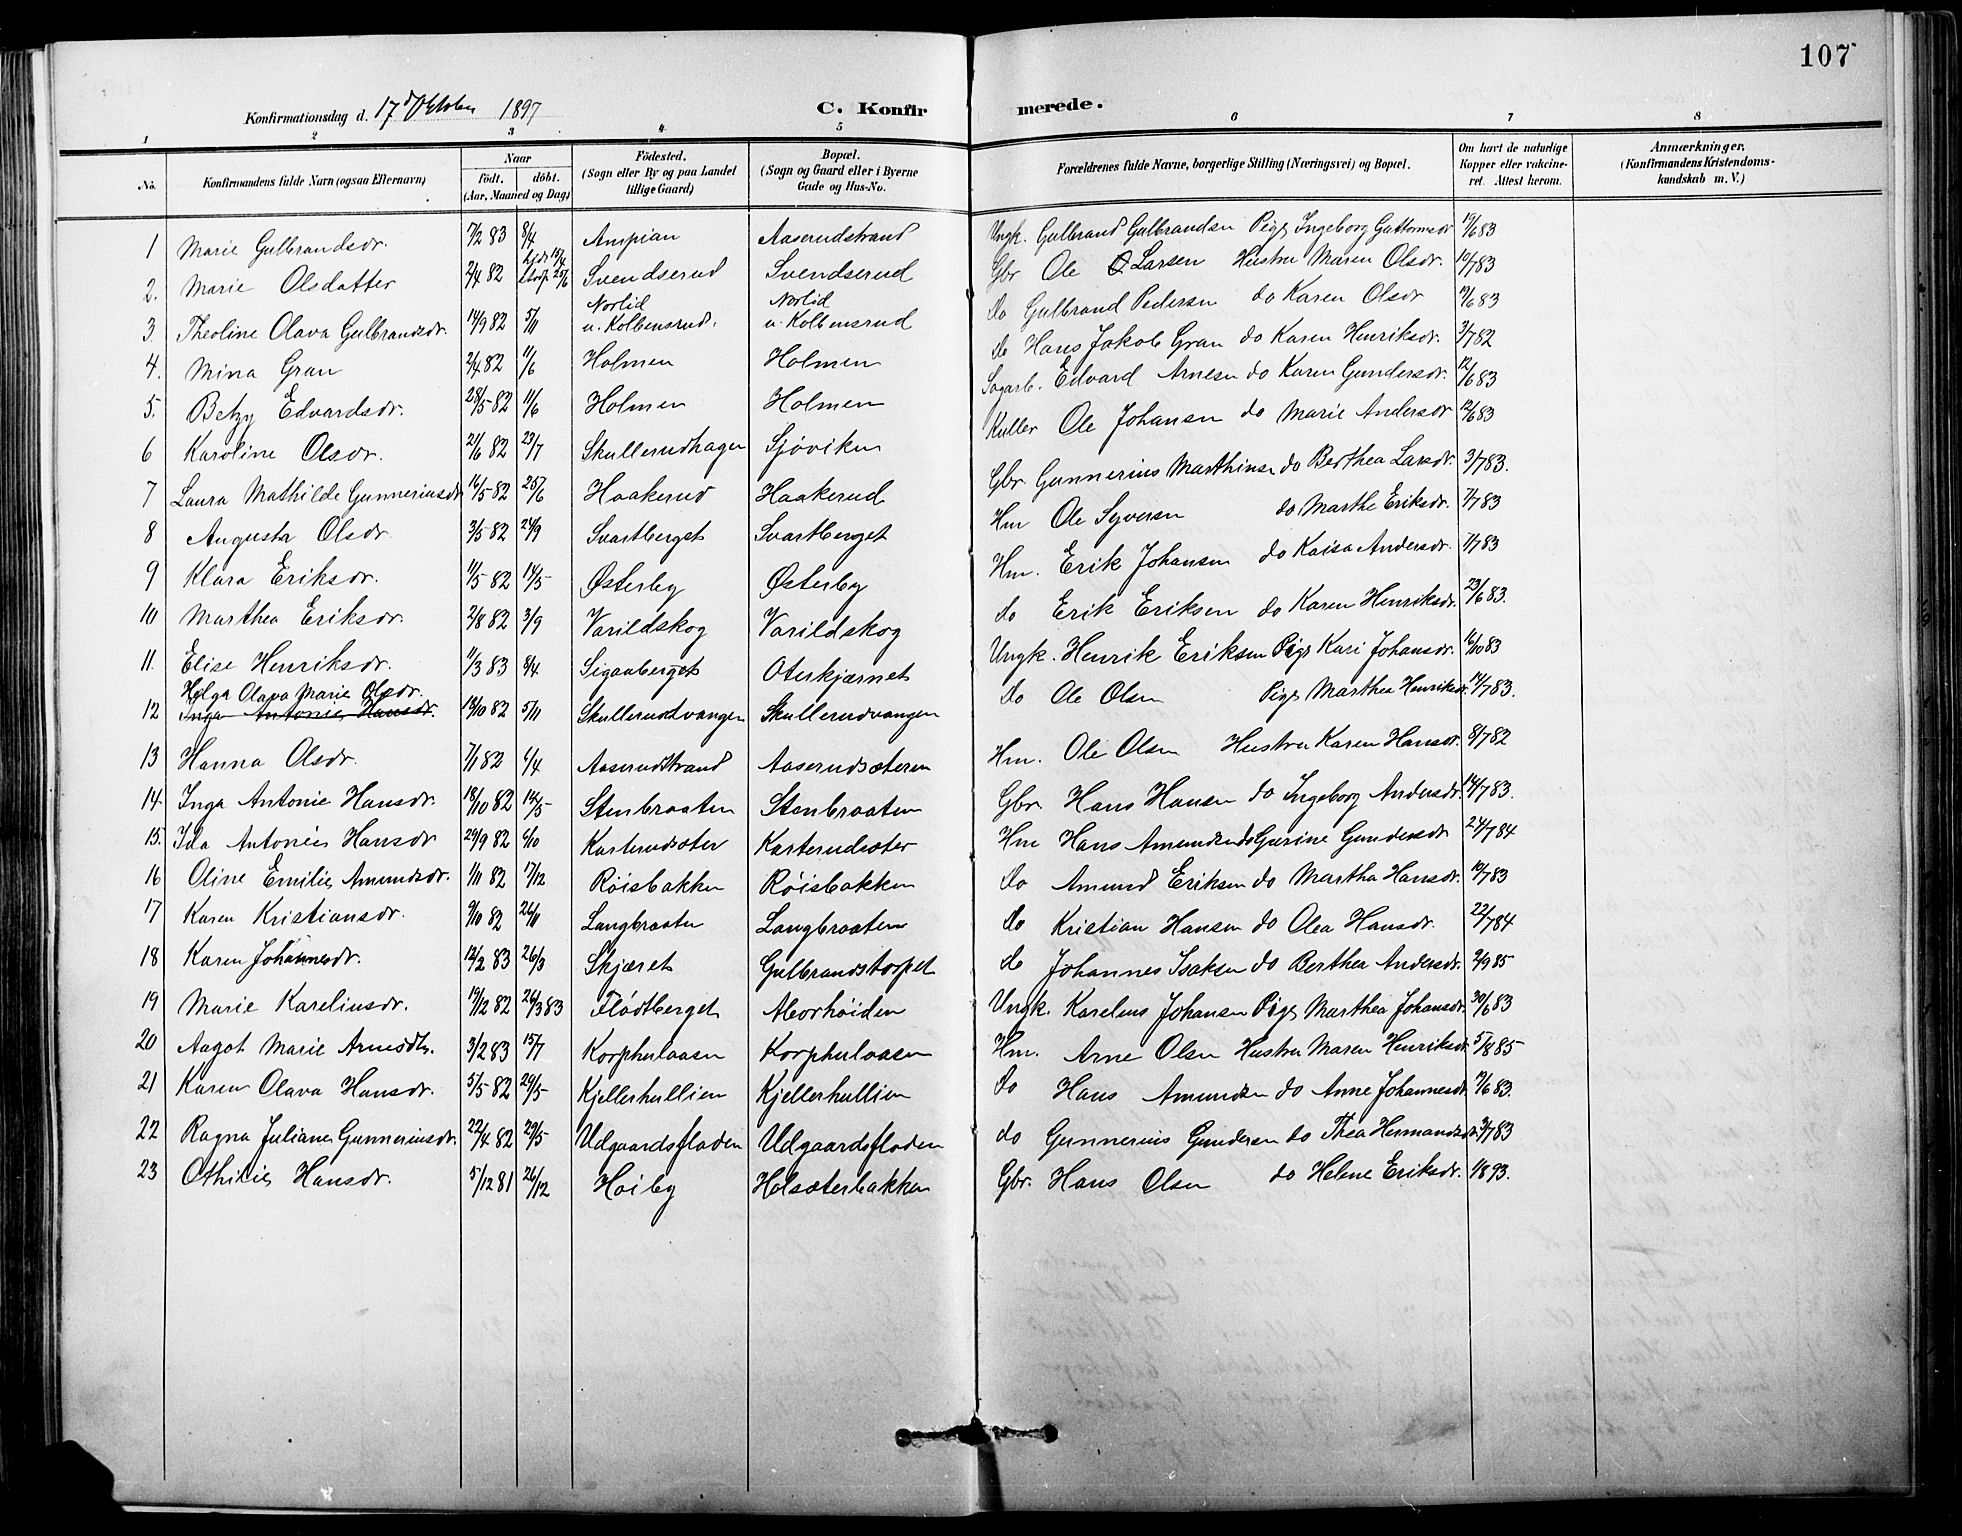 107
Konfirmationsdag d. 17de Oktober 1897
C. Konfirmerede.
1 2 3 4 5 6 7 8
No. Konfirmandens fulde Navn (ogsaa Efternavn) Naar födt. döbt. (Aar, Maaned og Dag) Födested. (Sogn eller By og paa Landet tillige Gaard) Bopæl. (Sogn og Gaard eller i Byerne Gade og Hus-No. Forældrenes fulde Navne, borgerlige Stilling (Næringsvei) og Bopæl. Om havt de naturlige Kopper eller vakcineret. Attest herom. Anmærkninger. (Konfirmandens Kristendomskundskab m. V.)
1 Marie Gulbrandsdr. 7/2 83 8/4 Ampian Aaserudstrand Ungk. Gulbrand Gulbrandsen Pige Ingeborg Guttormsdr 19/6 83
2. Marie Olsdatter 2/4 82 Svendserud Svendserud Gbr Ole Larsen Hustru Maren Olsdr. 10/7 83
3. Theoline Olava Gulbrandsdr. 14/9 82 5/11 Norlid u. Kolbensrud. Norlid u. Kolbensrud do Gulbrand Pedersen do Karen Olsdr 19/6 83
4. Mina Gran 2/4 82 11/6 Holmen Holmen do Hans Jakob Gran do Karen Henriksdr. 3/7 82
5. Betzy Edvardsdr. 28/5 82 11/6 Holmen Holmen Sagarb. Edvard Arnesen do Karen Gundersdr. 12/6 83
6 Karoline Olsdr. 21/6 82 23/7 Skullerudhagen Sjøviken Kuller Ole Johansen do Marie Andersdr 12/6 83
7 Laura Mathilde Gunneriusdr 16/5 82 25/6 Haakerud Haakerud Gbr Gunnerius Marthinsen do Berthea Larsdr. 3/7 83.
8 Augusta Olsdr. 3/5 82 24/9 Svartberget Svartberget Hm Ole Syversen do Marthe Eriksdr. 7/7 83
9 Klara Eriksdr. 11/5 82 14/5 Østerby Østerby Hm. Erik Johansen do Kaisa Andersdr. 7/7 83
10 Marthea Eriksdr. 2/8 82 3/9 Varildskog Varildskog do Erik Eriksen do Karen Henriksdr. 23/6 83.
11. Elise Henriksdr. 11/3 83 8/4 Sigaaberget Oterkjærnet Ungk. Henrik Eriksen Pige Kari Johansdr. 16/10 83
12 Helga Olava Marie Olsdr. Inga Antonie Hansdr. 18/10 82 5/11 Skullerudvangen Skullerudvangen do Ole Olsen Pige Marthea Henriksdr. 14/7 83.
13 Hanna Olsdr. 7/1 82 6/4 Aaserudstrand Aaserudsæteren Hm. Ole Olsen Hustru Karen Hansdr. 8/7 82
14. Inga Antonie Hansdr. 18/10 82 14/5 Stenbraaten Stenbraaten Gbr. Hans Hansen do Ingeborg Andersdr. 14/7 83.
15. Ida Antonie Hansdr 29/9 82 6/10 Karterudsæter Karterudsæter Hm Hans Amundsen do Gurine Gundersdr. 24/7 84
16 Oline Emilie Amundsdr. 1/11 82 17/12 Røisbakken Røisbakken do Amund Eriksen do Martha Hansdr. 10/7 83
17 Karen Kristiansdr. 9/10 82 26/11 Langbraaten Langbraaten do Kristian Hansen do Olea Hansdr. 22/7 84
18 Karen Johannesdr. 12/2 83 26/3 Skjæret Gulbrandstorpet do Johannes Isaksen do Berthea Andersdr. 2/9 85
19 Marie Kareliusdr. 19/12 82 26/3 83 Flødtberget Morhøiden Ungk. Karelius Johansen Pige Marthea Johansdr. 30/6 83
20 Aagot Marie Arnesdtr. 3/2 83 15/7 Korphulaasen Korphulaasen Hm. Arne Olsen Hustru Maren Henriksdr. 5/8 85
21 Karen Olava Hansdr. 5/5 82 29/5 Kjellerhullien Kjellerhullien do Hans Amundsen do Anne Johannesdr. 19/6 83.
22 Ragna Juliane Gunneriusdr. 22/4 82 29/5 Udgaardsfloden Udgaardsfloden do Gunnerius Gundersen do Thea Hermansdr. 3/7 83
23 Othilie Hansdr. 5/12 81 26/12 Høiby Holsæterbakken Gbr. Hans Olsen do Helene Eriksdr. 1/8 93.